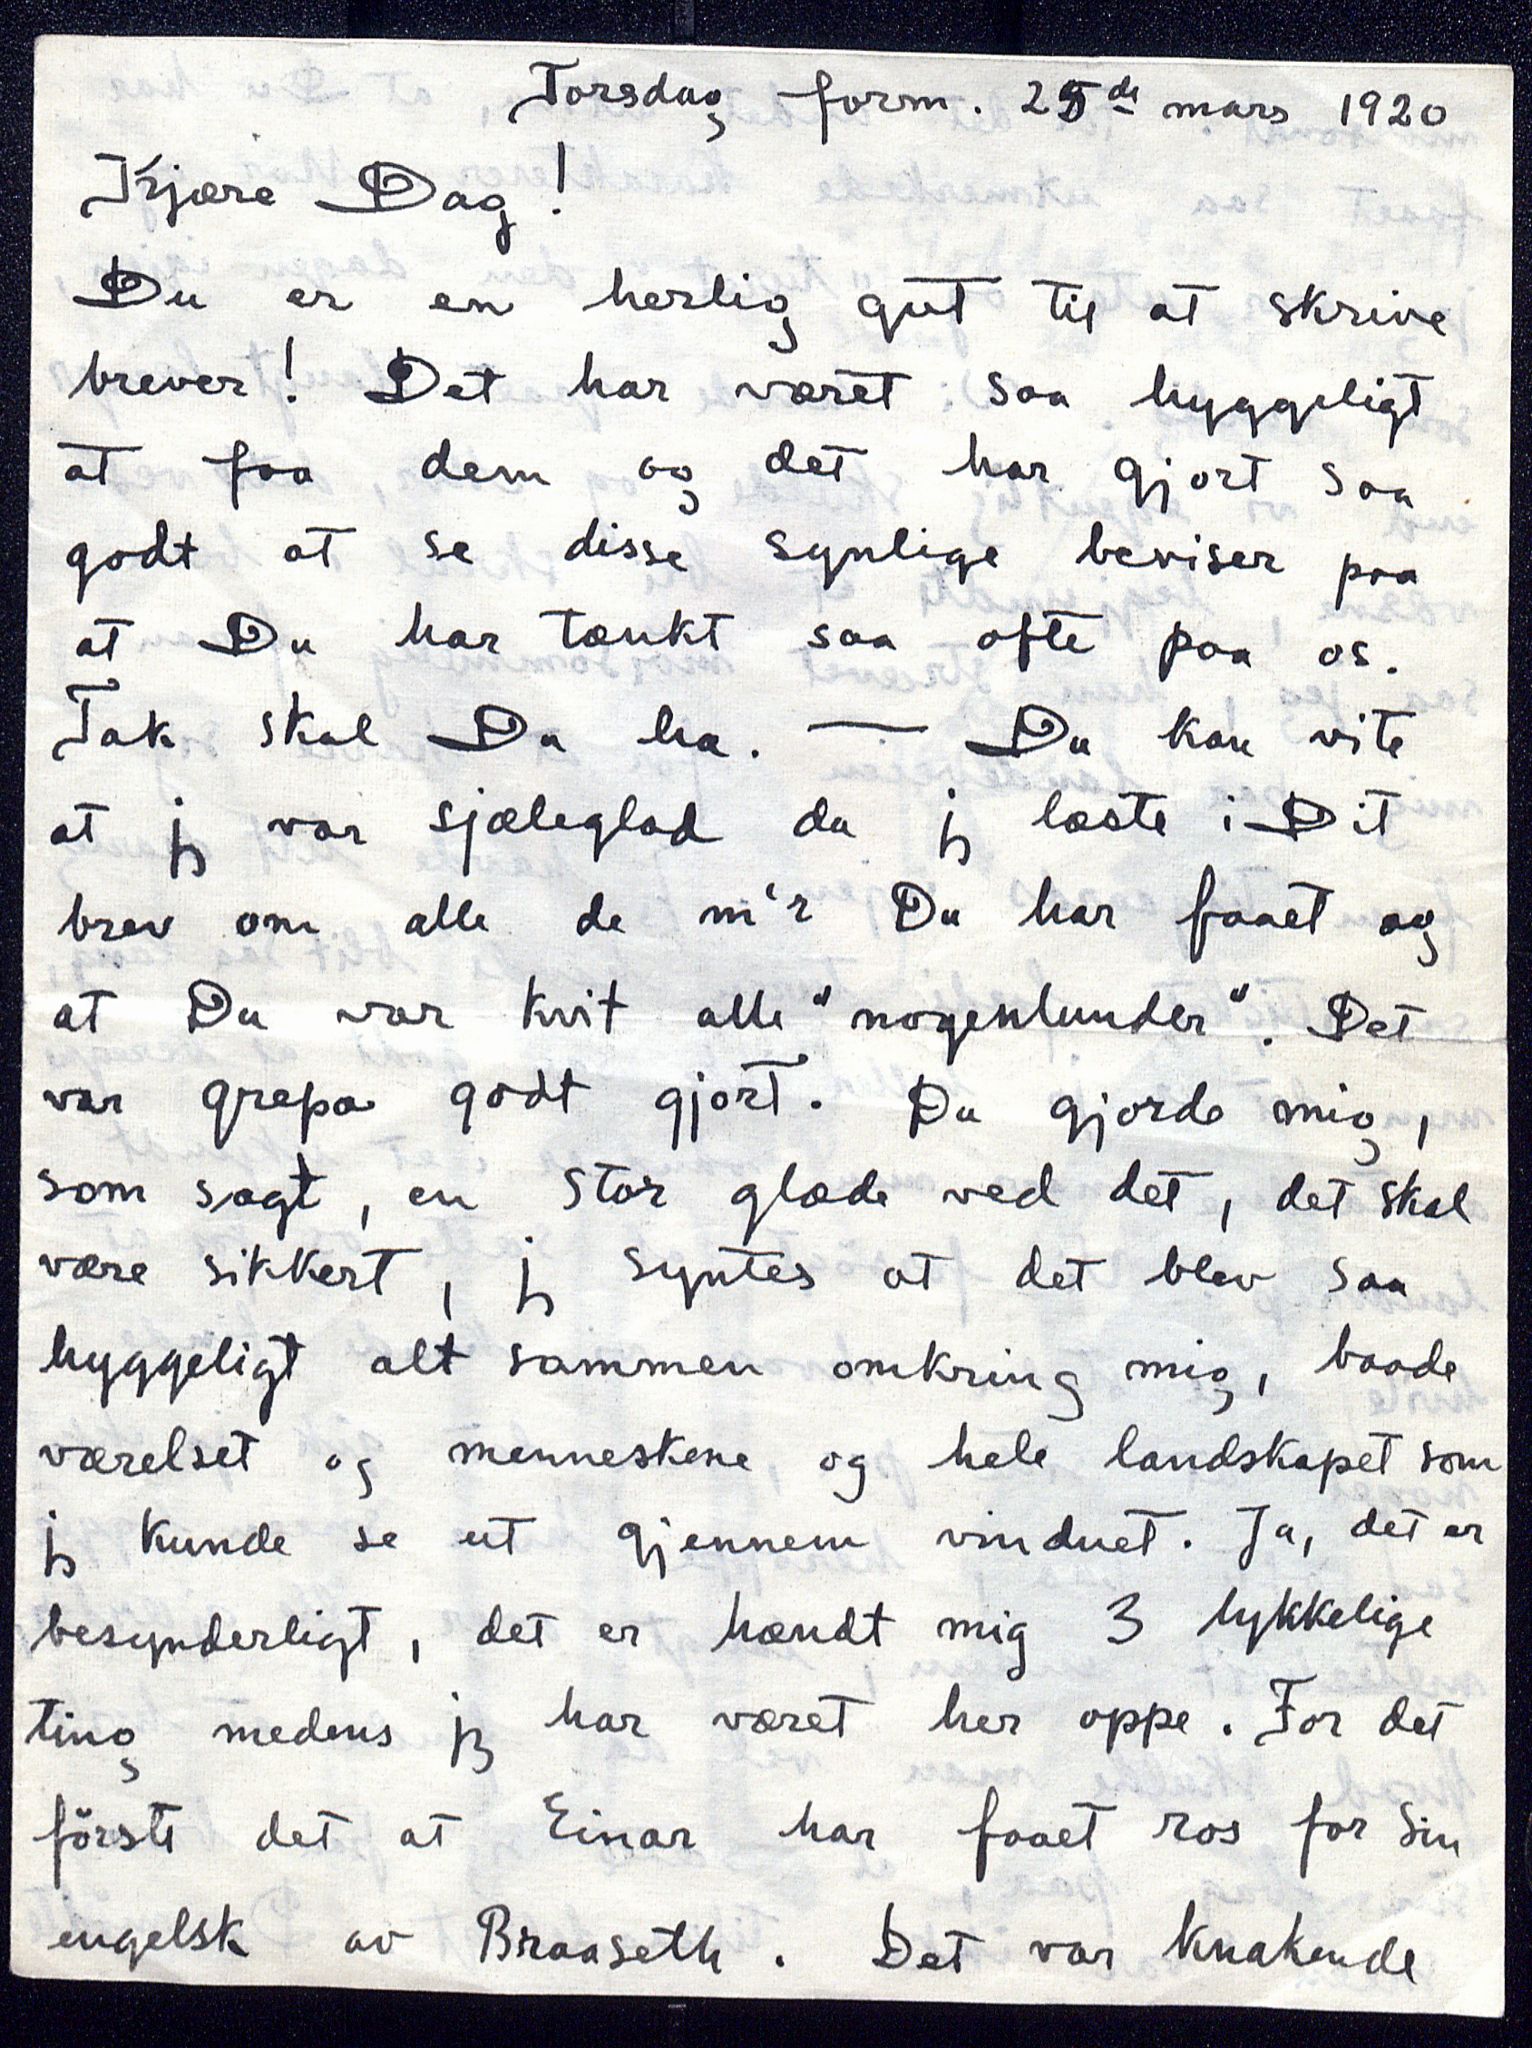 Torsdag form. 25de mars 1920
Kjære Dag!
Du er en herlig gut til at skrive
brever! Det har været saa hyggeligt
at faa dem og det har gjort saa
godt at se disse synlige beviser paa
at Du har tænkt saa ofte paa os.
Tak skal Du ha. — Du kan vite
at jg var sjæleglad da jg læste i Dit
brev om alle de m'r Du har faaet og
at Du var kvit alle "nogenlunder". Det
var grepa godt gjort. Du gjorde mig,
som sagt, en stor glæde ved det, det skal
være sikkert, jg syntes at det blev saa
hyggeligt alt sammen omkring mig, baade
værelset og menneskene, og hele landskapet som
jg kunde se ut gjennem vinduet. Ja, det er
besynderligt, det er hændt mig 3 lykkelige
ting medens jg har været her oppe. For det
förste det at Einar har faaet ros for sin
engelsk av Braaseth. Det var knakende